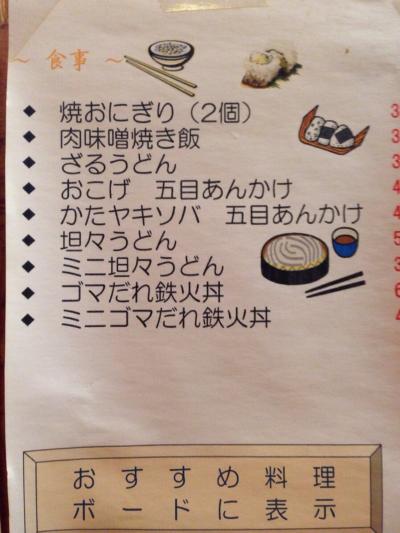 ~ 食事 ~
◆ 焼おにぎり（2個） 3
◆ 肉味噌焼き飯 3
◆ ざるうどん 3
◆ おこげ　五目あんかけ 4
◆ かたヤキソバ　五目あんかけ 4
◆ 坦々うどん 5
◆ ミニ坦々うどん 3
◆ ゴマだれ鉄火丼 6
◆ ミニゴマだれ鉄火丼 4
おすすめ料理
ボードに表示